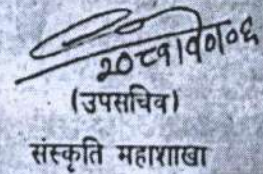 २०८१।१०।०६
(उपसचिव)
संस्कृति महाशाखा